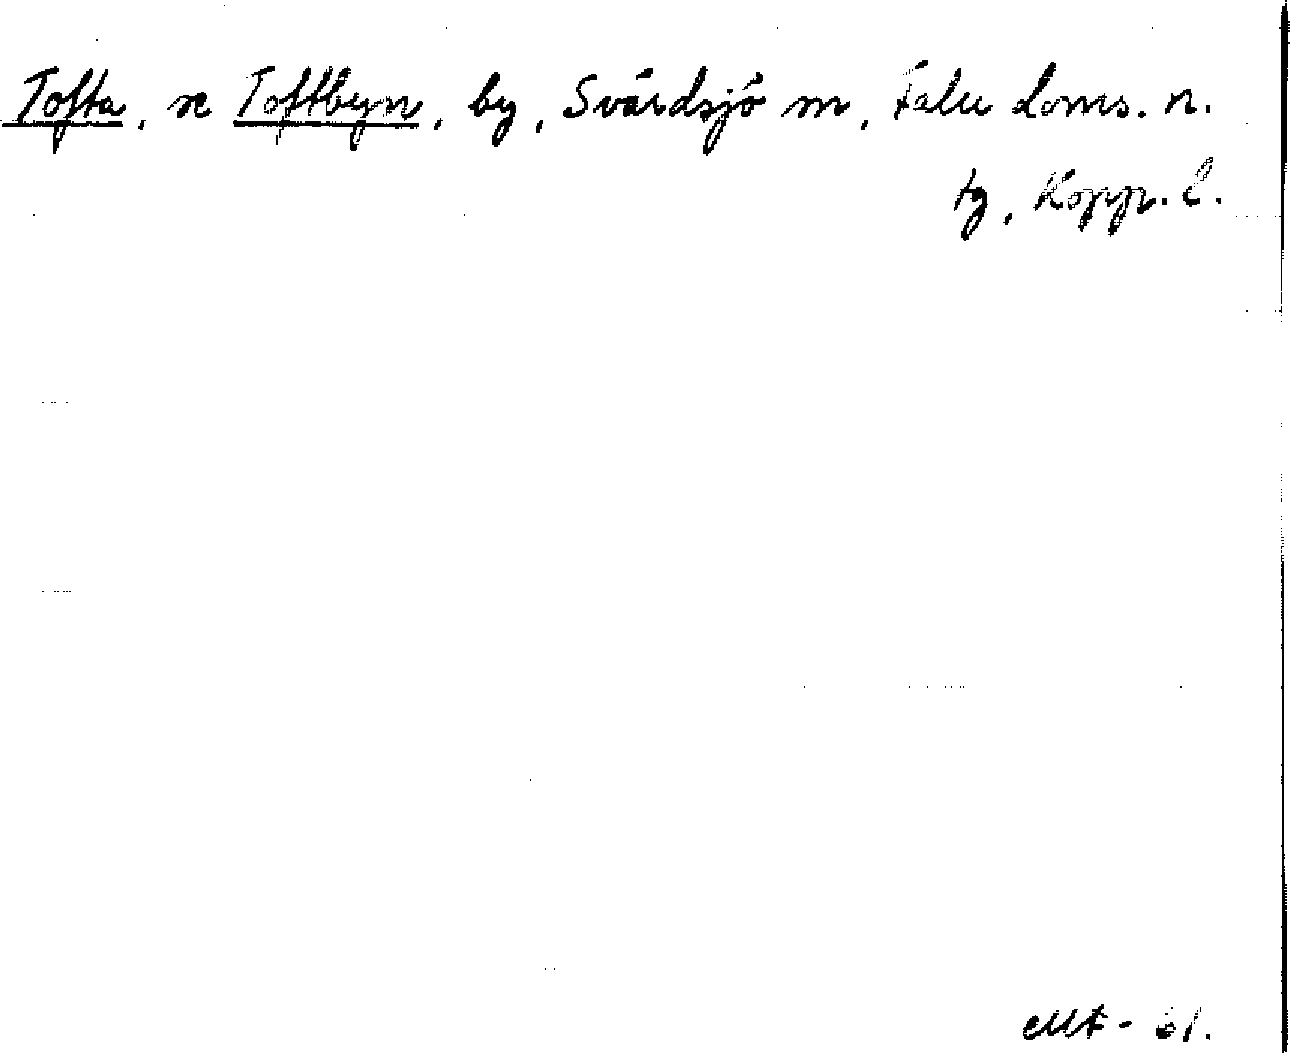 Tofta, se Toftbyn, by, Svärdsjö sn, Falu doms. n.
tg, Kopp. l.